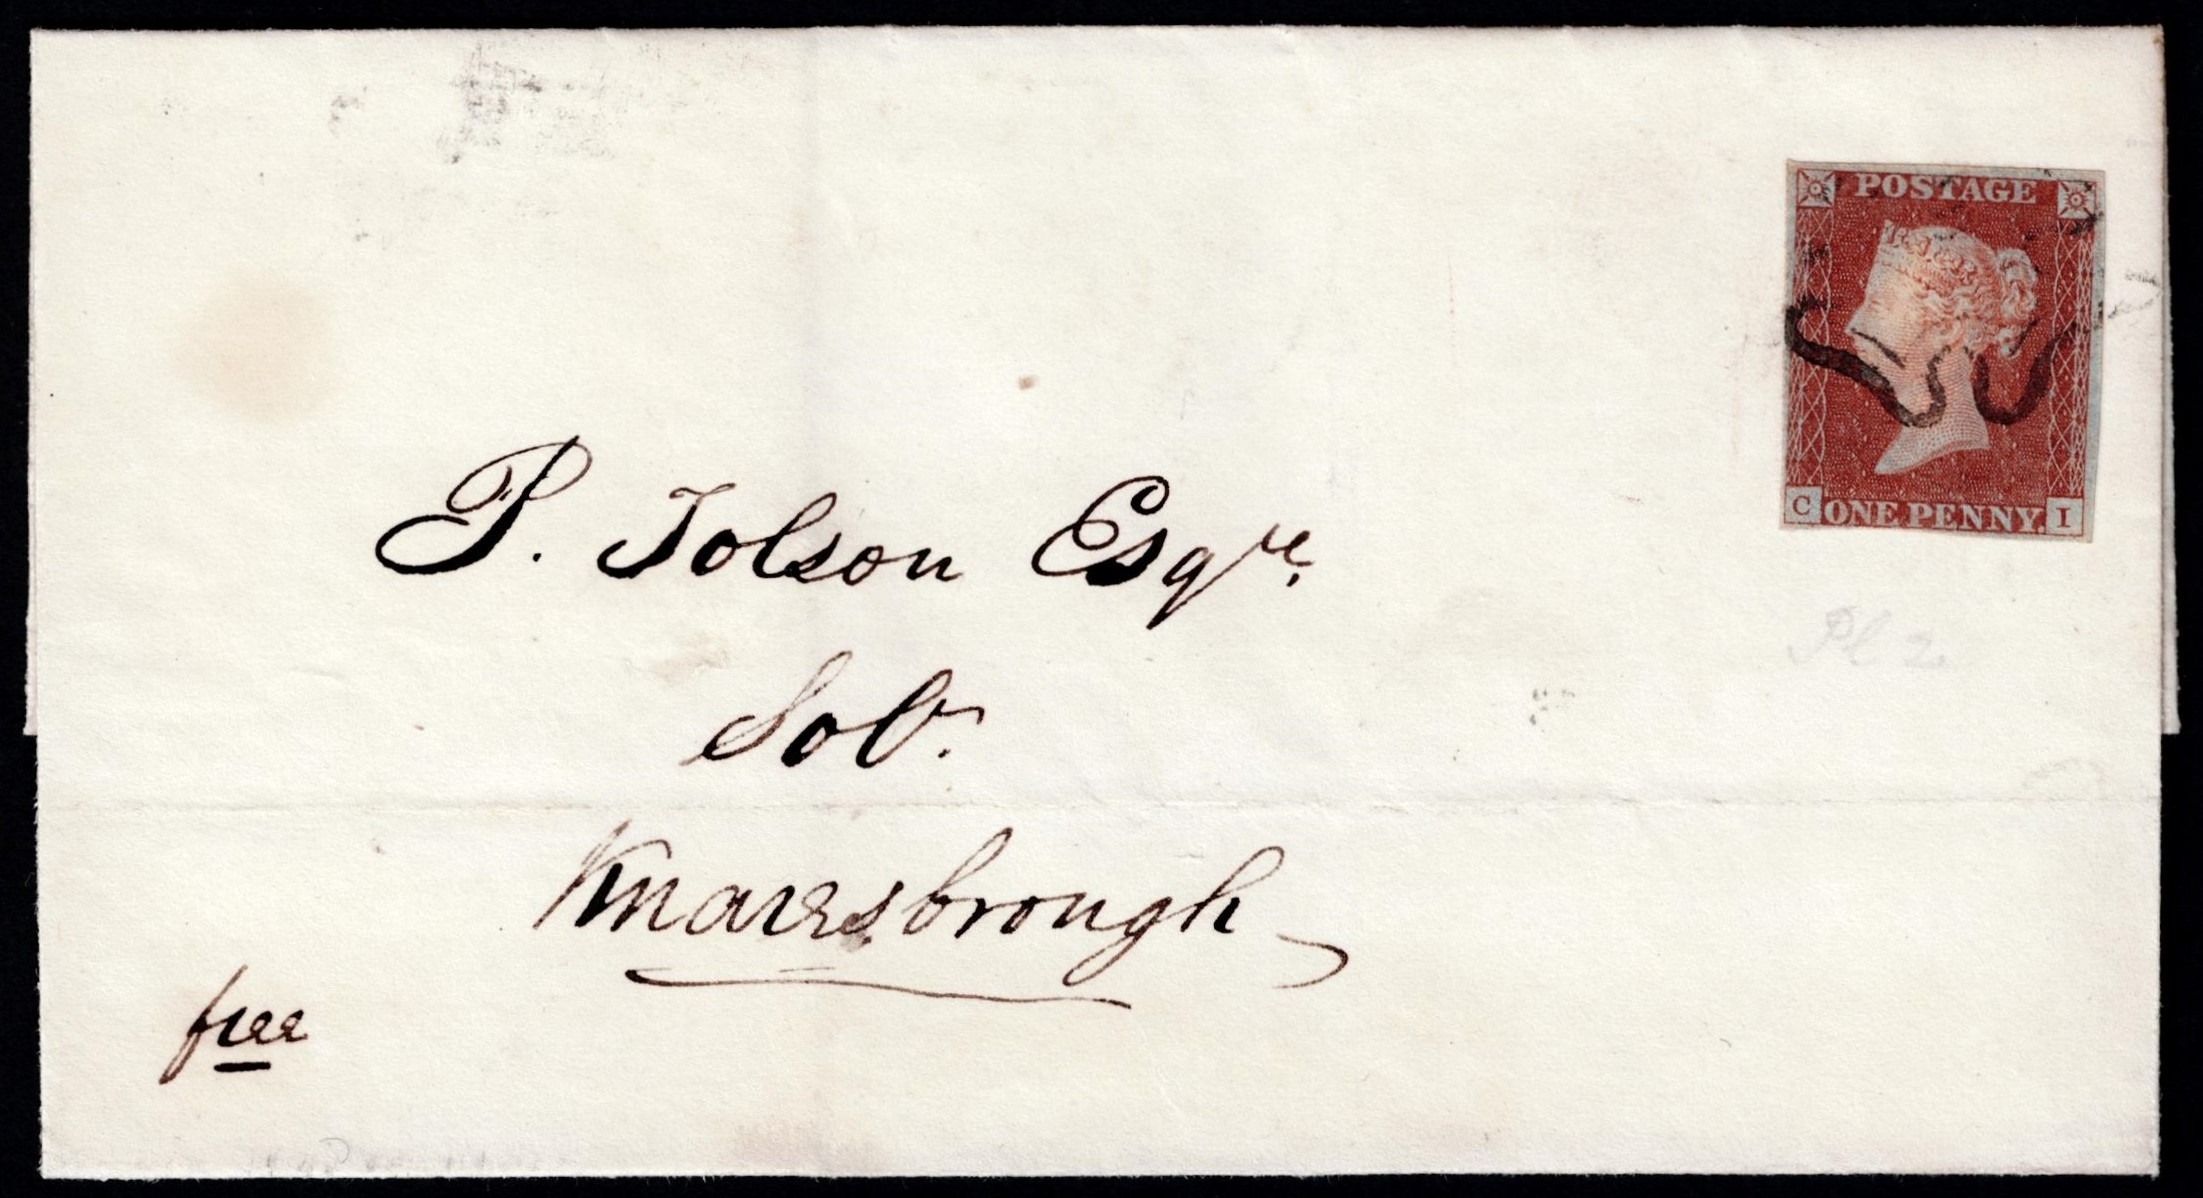 POSTAGE
C ONE PENNY. I
P. Tolson Esqre.
Pl 2
Solr.
Knaresbrough
free